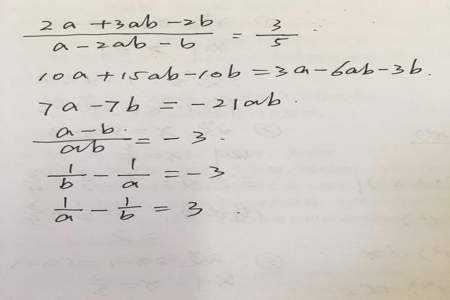 (2a+3ab-2b)/(a-2ab-b) = 3/5
10a+15ab-10b=3a-6ab-3b.
7a-7b=-21ab.
(a-b)/(ab)=-3.
1/b-1/a=-3
1/a-1/b=3.